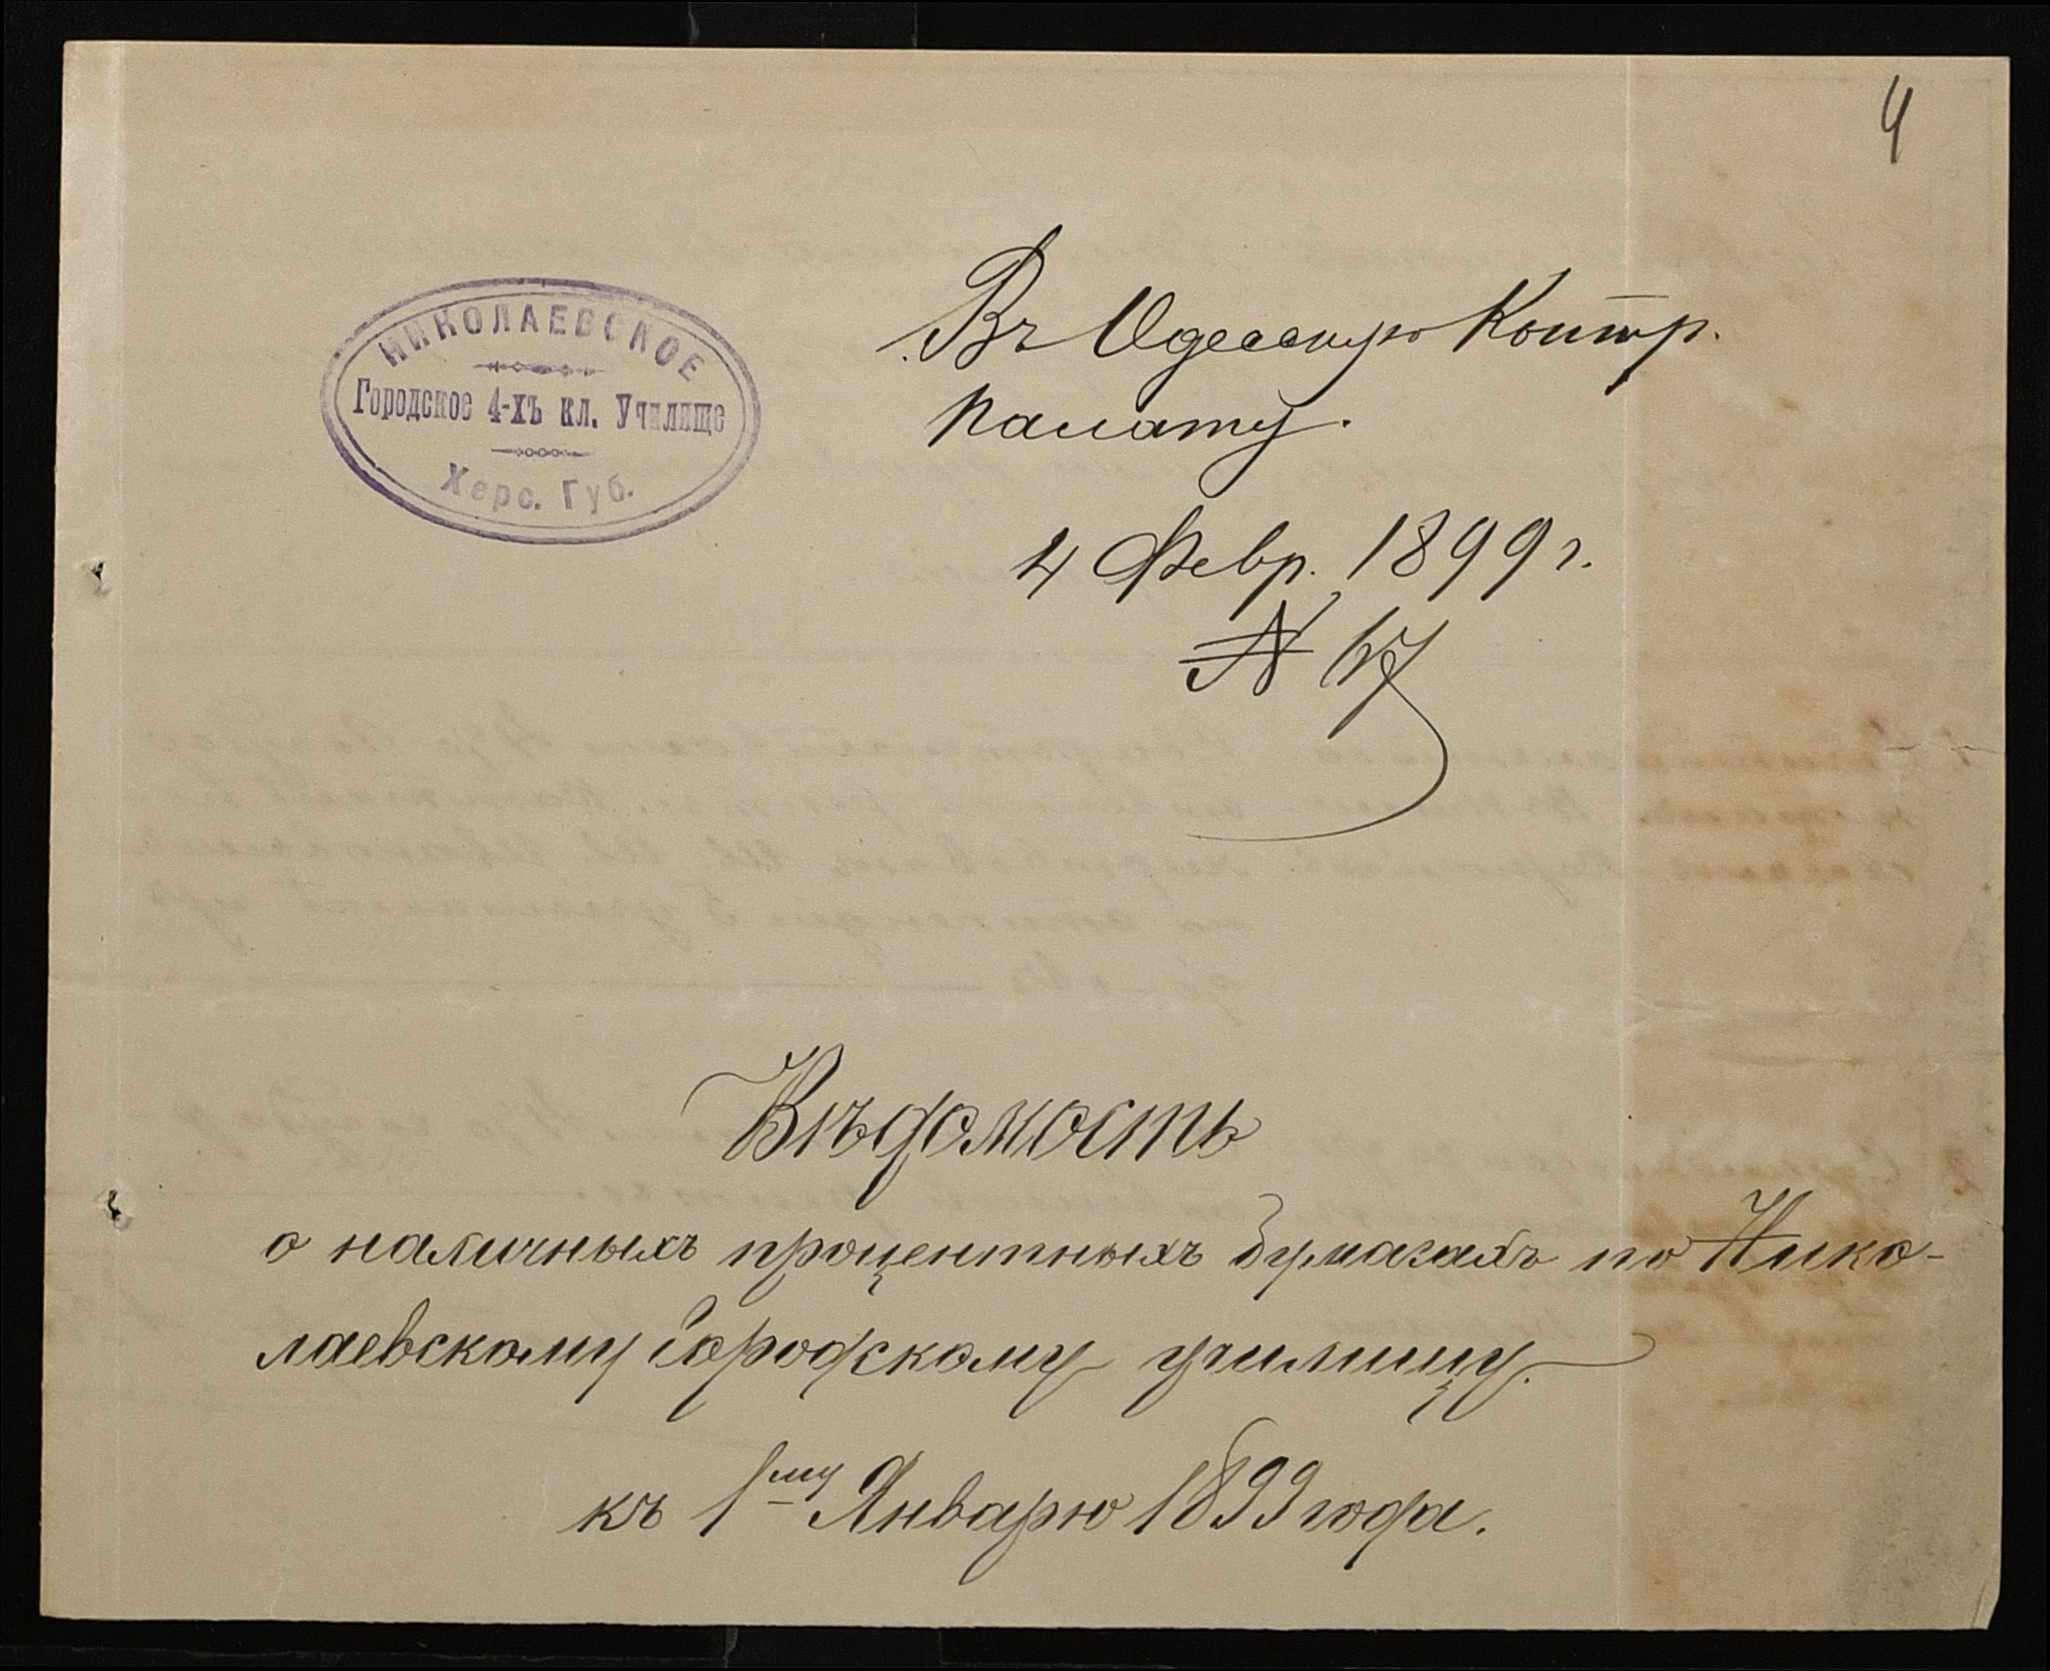 4
НИКОЛАЕВСКОЕ
Городское 4-хъ кл. Училище
Херс. Губ.
Въ Одесскую Контр.
палату.
4 Февр. 1899 г.
№ 67
Вѣдомость
о наличныхъ процентныхъ бумагахъ по Нико-
лаевскому Городскому училищу.
къ 1му Январю 1899 года.